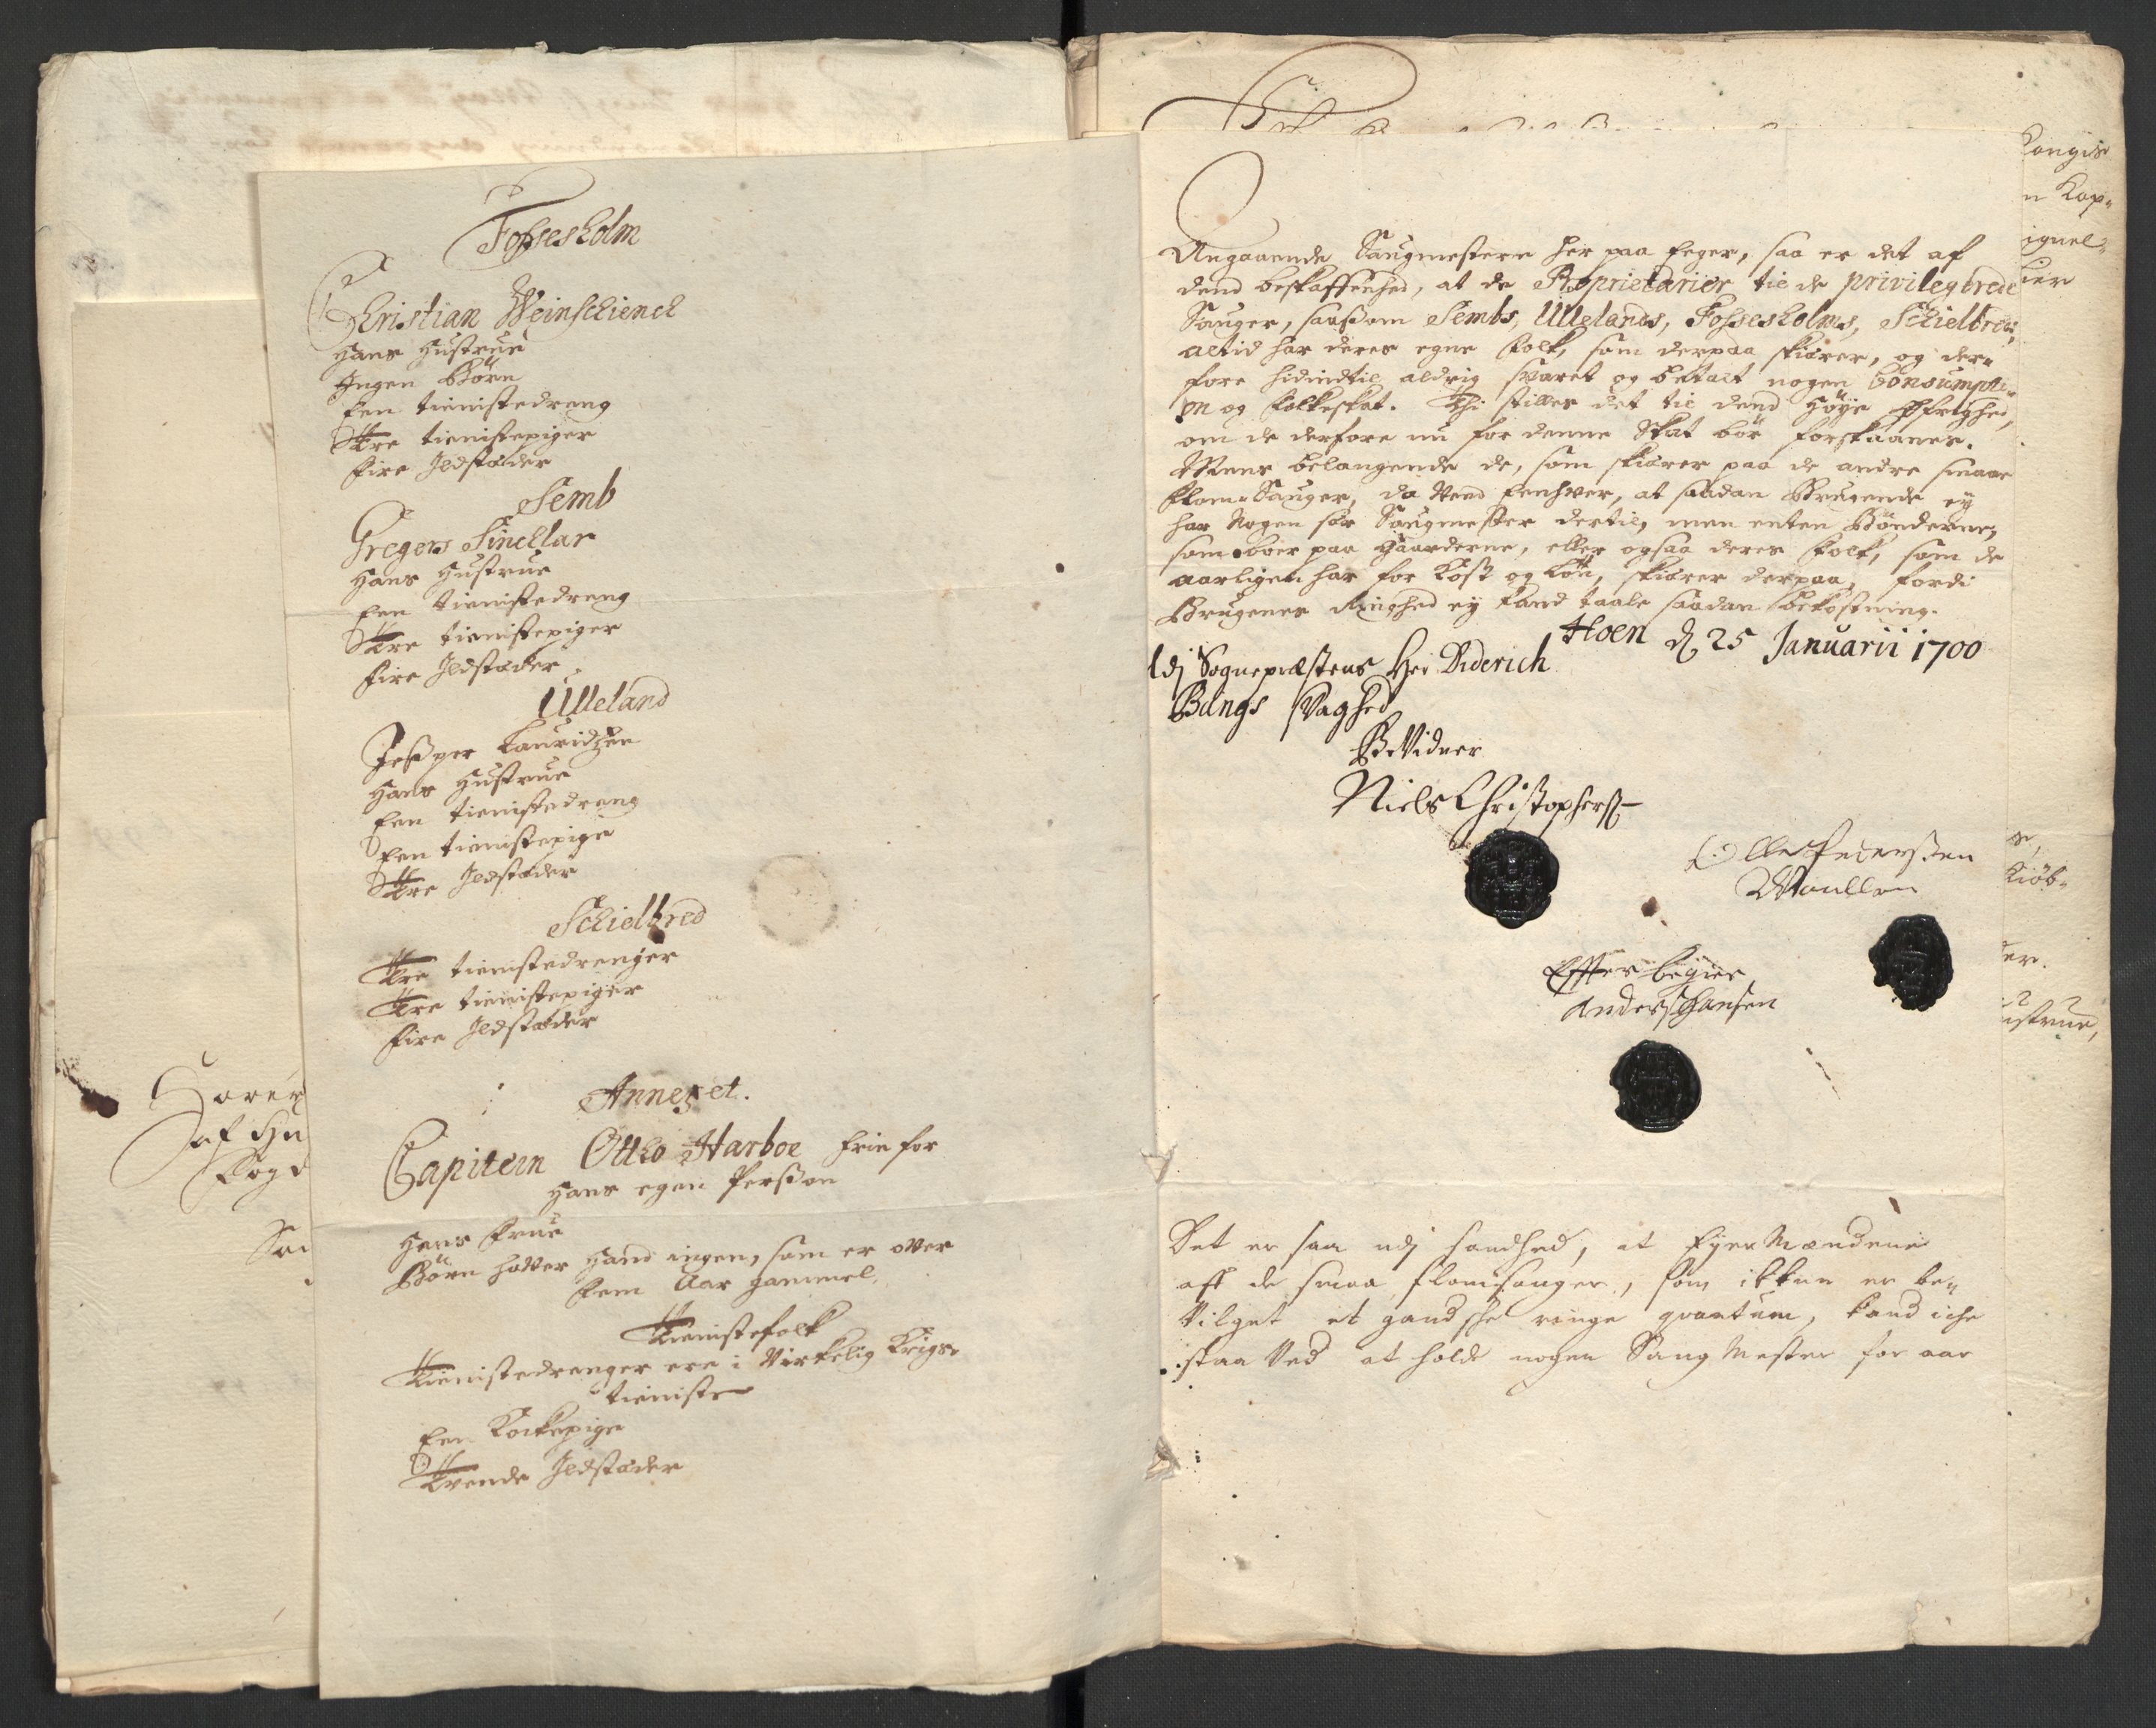 Fossesholm
Christian Weinschienck
Hans Hustrue
Ingen Börn
Een tienistedreng
Tre tienistepiger
Fire Ildstæder
Semb
Gregers Sincklar
Hans Hustrue
Een tienistedreng
Tre tienistepiger
Fire Ildstæder
Ulleland
Jesper Lauridzen
Hans Hustrue
Een tienistedreng
Een tienistepige
Tre Ildstæder
Schielbred
Tre tienistedrenger
Tre tienistepiger
Fire Ildstæder
Annexet.
Capitein Otto Harboe frie for
Hans egen Person
Hans Frue
Börn hafver Hand ingen, som er ofver
fem Aar gammel.
Tienistefolk
Tienistedrenger ere i Virkelig Krigs-
tieniste
Een Kockepige
Tvende Ildstæder
Harer
af Hu
Fogd
Angaaende Saugmestere her paa Eger, saa er det af
dend beskaffenhed, at de Proprietarier til de privilegerede
Sauger, saasom Sembs, Ullelands, Fossesholms, Schielbreds,
altid har deres egne Folk, som derpaa skiærer, og der-
fore hidindtil aldrig svaret og betalt nogen Consumpti-
on og Folkeskat. Thi stilles det til dend Høye Øfrighed,
om de derfore nu for denne Skat bör forskaanes.
Mens belangende de, som skiærer paa de andre smaae
Flom-Sauger, da Veed Eenhver, at saadan Brugende ey
har Nogen sær Saugmester dertil, men enten Bönderne,
som boer paa Gaarderne, eller ogsaa deres Folk, som de
aarligen har for Kost og Lön, skiærer derpaa, fordi
Brugenes Ringhed ey kand taale saadan bekostning.
Hoen d. 25 Januarii 1700
Udj Sognepræstens Her Diderich
Bangs Svaghed
B Vidner
Niels Christophers
Olle Pedersen
Moullen
Efter begier
Anders Hansen
Det er saa udj sandhed, at Eyer Mændene
aff de smaa flomsauger, som ikkun er be-
Vilget et gandsche ringe quantum, kand iche
staa Ved at holde nogen Saug Mester for aar